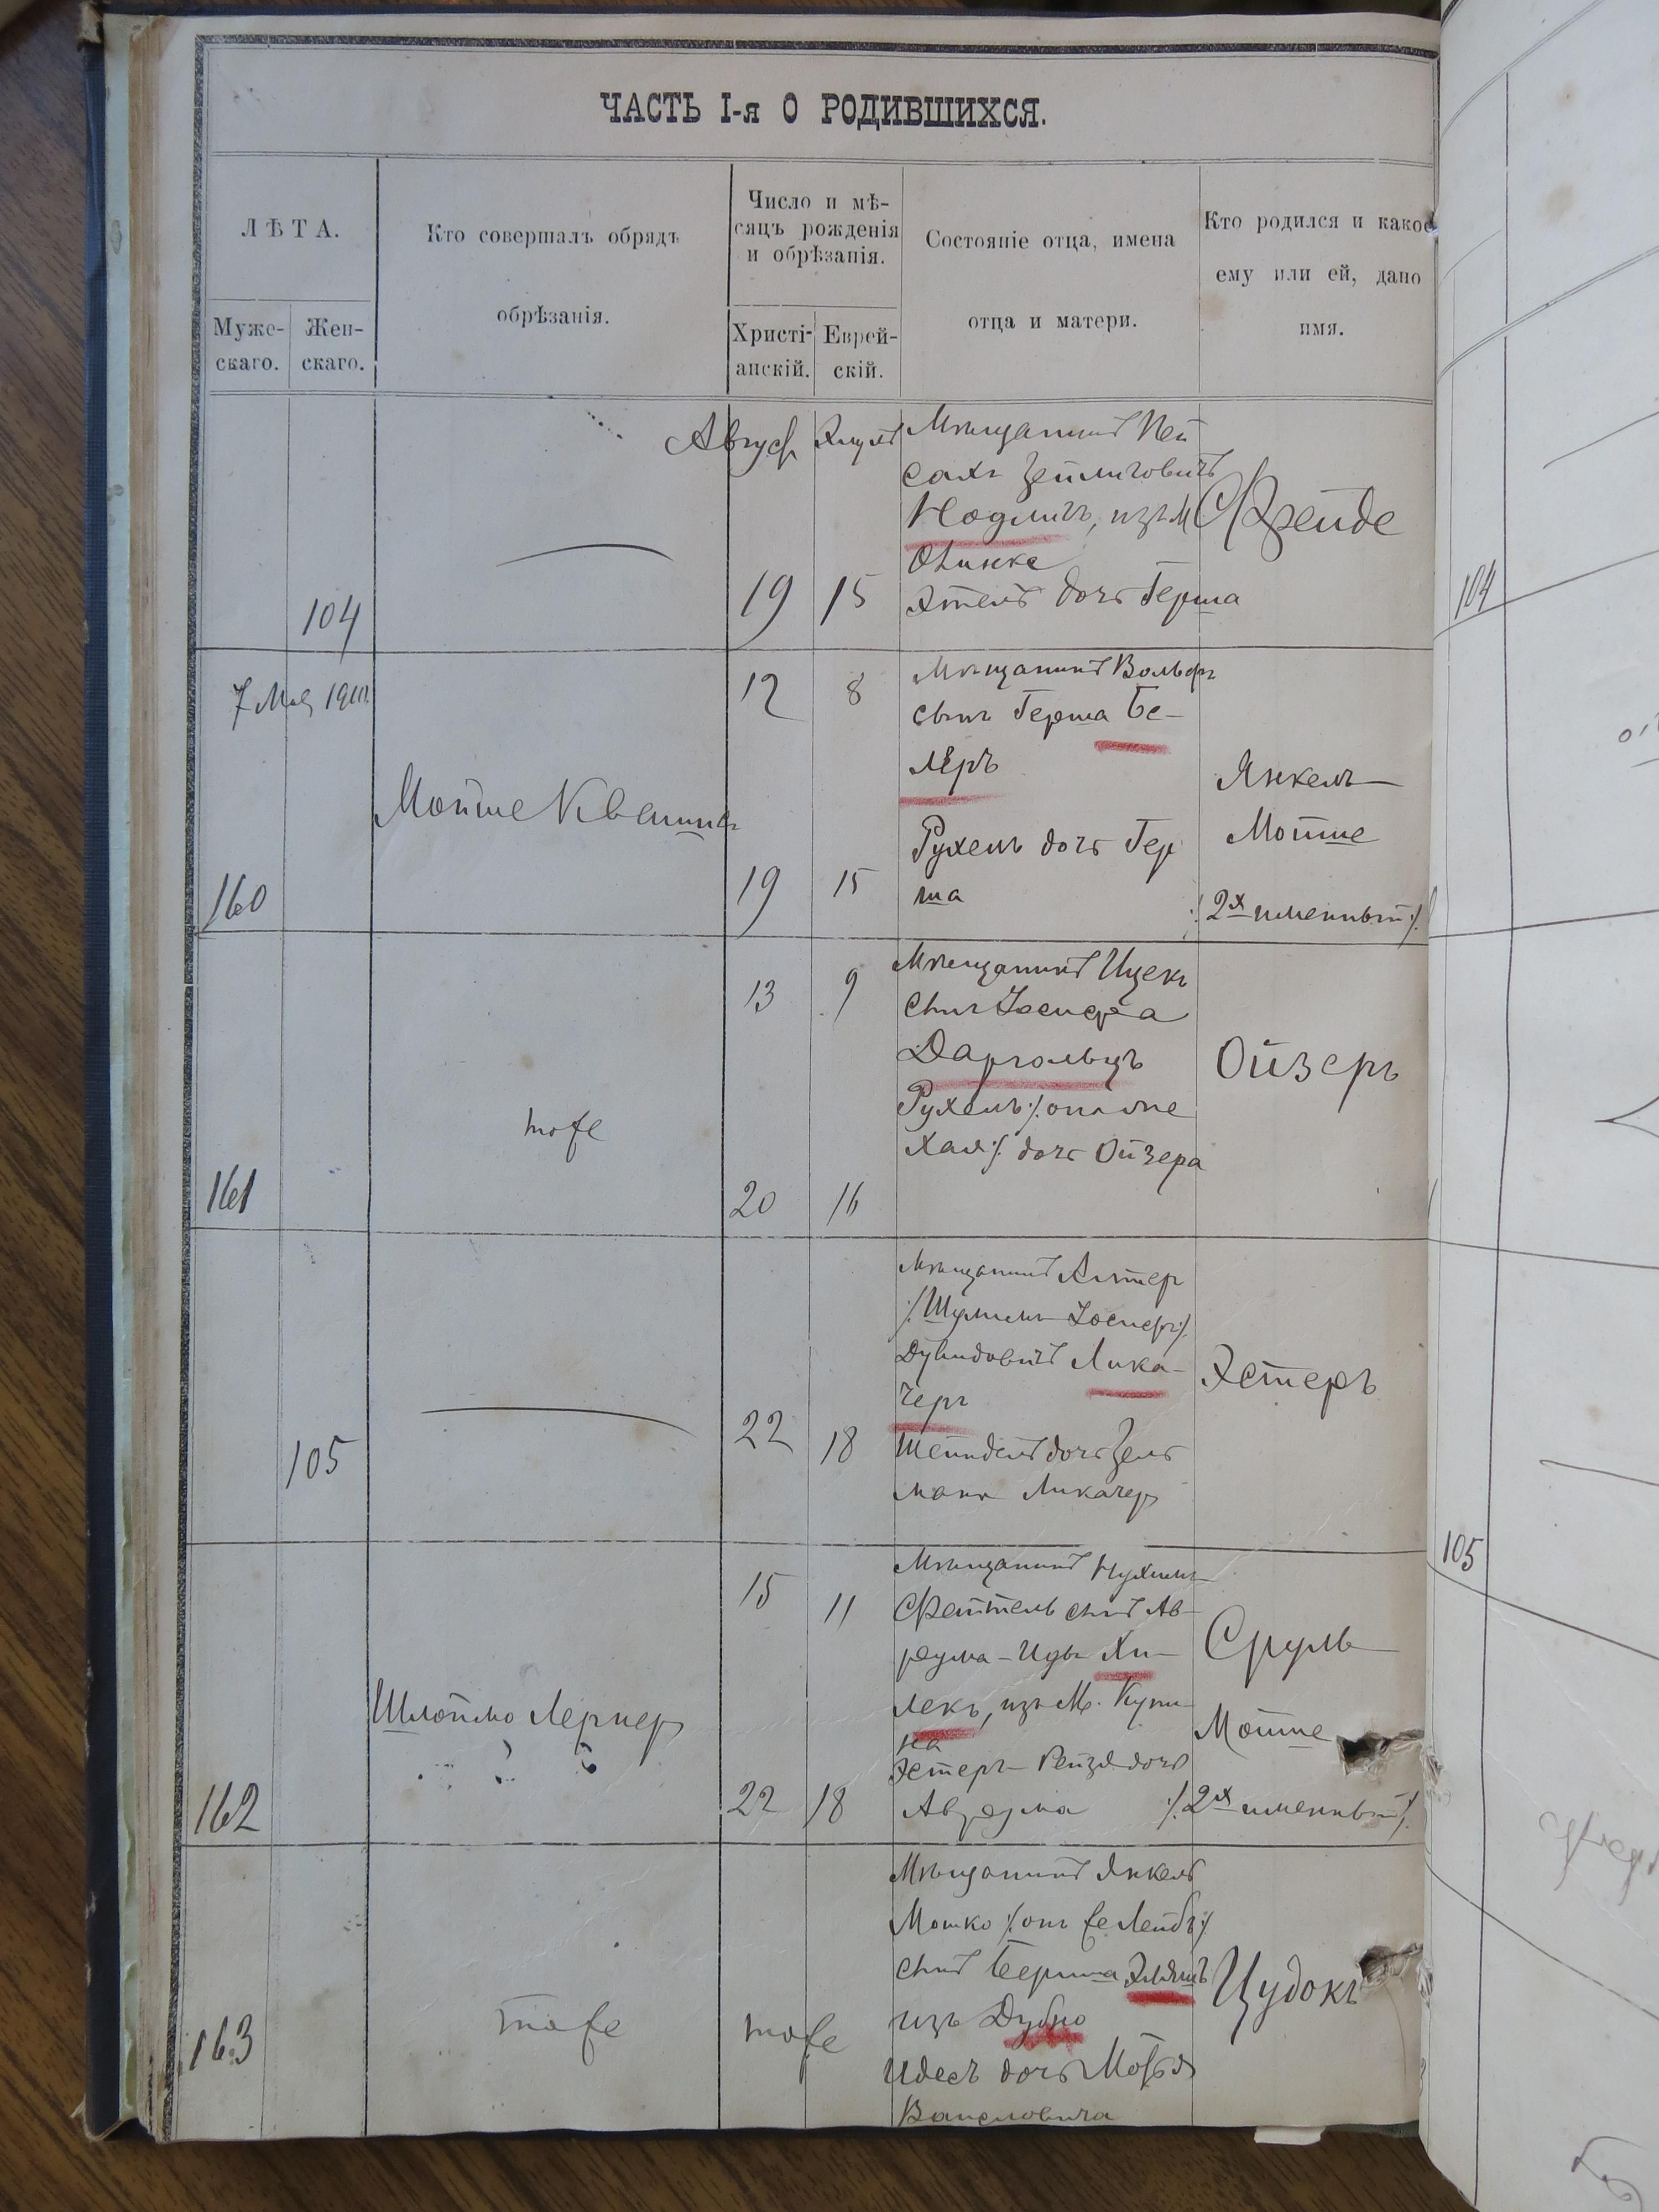 ЧАСТЬ I-я О РОДИВШИХСЯ.
ЛѢТА.
Муже-
скаго.
Жен-
скаго.
Кто совершалъ обрядъ
обрѣзанія.
Число и мѣ-
сяцъ рожденія
и обрѣзанія.
Христі-
анскій.
Еврей-
скій.
Состояніе отца, имена
отца и матери.
Кто родился и какое
ему или ей, дано
имя.
104
Август
Элулъ
19
15
Мѣщанинъ Пей
сахъ Зейлиговичъ
Нодлигъ, изъ М
Этель дочь Герша
Фрейде
104
160
Мойше Квашникъ
12
8
19
15
Мѣщанинъ Вольфъ
сынъ Герша Бе-
леръ
Рухель дочь Гер
ша
Янкель
Мойше
/2х именный/
161
тоже
13
9
20
16
Мѣщанинъ Ицекъ
сынъ Іосифа
Даргольцъ
Рухель /она же
Хая/ дочь Ойзера
Ойзеръ
105
22
18
Мѣщанинъ Алтер
/Шулимъ Іосифъ/
Дувидовичъ Лика-
черъ
Шейндель дочь Зель
мана Ликачер
Эстеръ
105
162
Шлоймо Лернер
15
11
22
18
Мѣщанинъ Нухимъ
Файтель сынъ Ав-
рума-Иды Хи-
лекъ, изъ М. Купи
на
Эстеръ-Рейзя дочь
Аврума
Сруль
Мойше
/2х именный/
163
тоже
тоже
Мѣщанинъ Янкель
Мошко /онъ же Лейбъ/
сынъ Берша Эльяшъ
изъ Дубно
Идесъ дочь Мотья
Ваисловича
Цудокъ